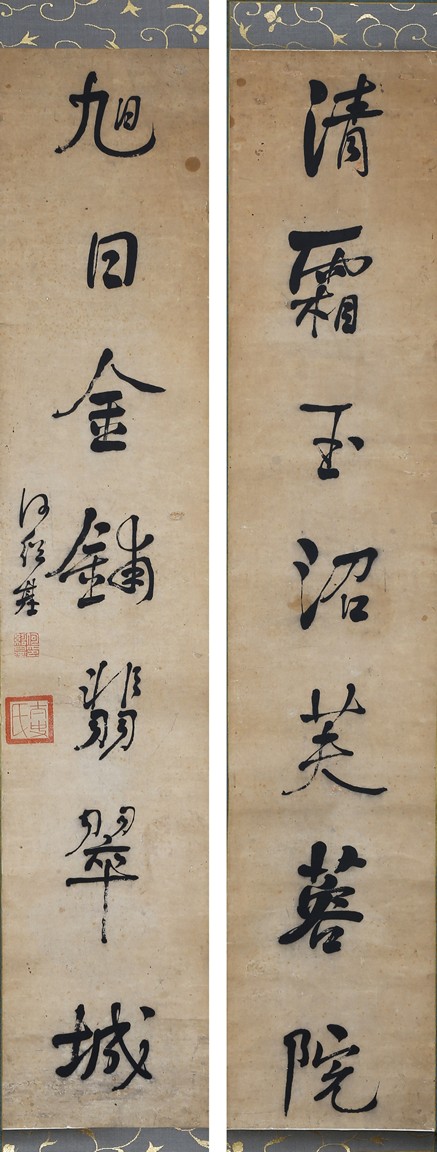 清霜玉沼芙蓉院
旭日金鋪翡翠城
何紹基
太史氏